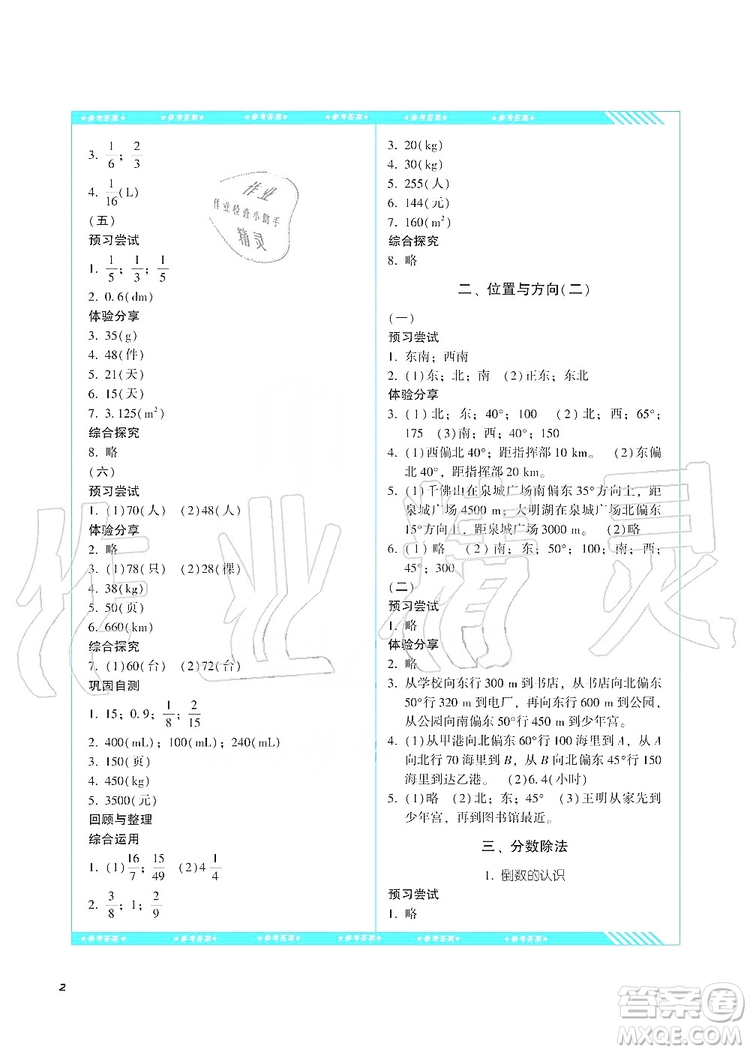 ★参考答案★ ★参考答案★ ★参考答案★ ★参考答案★ ★参考答案★ ★参考答案★
3. 1/6；2/3
4. 1/16(L)
(五)
预习尝试
1. 1/5；1/3；1/5
2. 0.6(dm)
体验分享
3. 35(g)
4. 48(件)
5. 21(天)
6. 15(天)
7. 3.125(m²)
综合探究
8. 略
(六)
预习尝试
1. (1)70(人) (2)48(人)
体验分享
2. 略
3. (1)78(只) (2)28(棵)
4. 38(kg)
5. 50(页)
6. 660(km)
综合探究
7. (1)60(台) (2)72(台)
巩固自测
1. 15；0.9；1/8；2/15
2. 400(mL)；100(mL)；240(mL)
3. 150(页)
4. 450(kg)
5. 3500(元)
回顾与整理
综合运用
1. (1)16/7；15/49 (2)4 1/4
2. 3/8；1；2/9
3. 20(kg)
4. 30(kg)
5. 255(人)
6. 144(元)
7. 160(m²)
综合探究
8. 略
二、位置与方向(二)
(一)
预习尝试
1. 东南；西南
2. (1)东；北；南 (2)正东；东北
体验分享
3. (1)北；东；40°；100 (2)北；西；65°；
175 (3)南；西；40°；150
4. (1)西偏北40°，距指挥部20 km。 (2)东偏
北40°，距指挥部10 km。
5. (1)千佛山在泉城广场南偏东35°方向上，距
泉城广场4500 m；大明湖在泉城广场北偏东
15°方向上，距泉城广场3000 m。 (2)略
6. (1)略 (2)南；东；50°；500 (3)南；西；
45°；300
(二)
预习尝试
1. 略
体验分享
2. 略
3. 从学校向东行300 m到书店，从书店向北偏东
50°行320 m到电厂，再向东行600 m到公园，
从公园向南偏东50°行450 m到少年宫。
4. (1)从甲港向北偏东50°行100海里到A，从A
向北行70海里到B，从B向北偏西60°行150
海里到达乙港。 (2)6.4(小时)
5. (1)略 (2)北；东；45° (3)王明从家先到
少年宫，再到图书馆最近。
三、分数除法
1. 倒数的认识
预习尝试
1. 略
★参考答案★ ★参考答案★ ★参考答案★ ★参考答案★ ★参考答案★ ★参考答案★
2
作业
作业检查小助手
精灵
作业精灵
答案圈
MXQE.COM